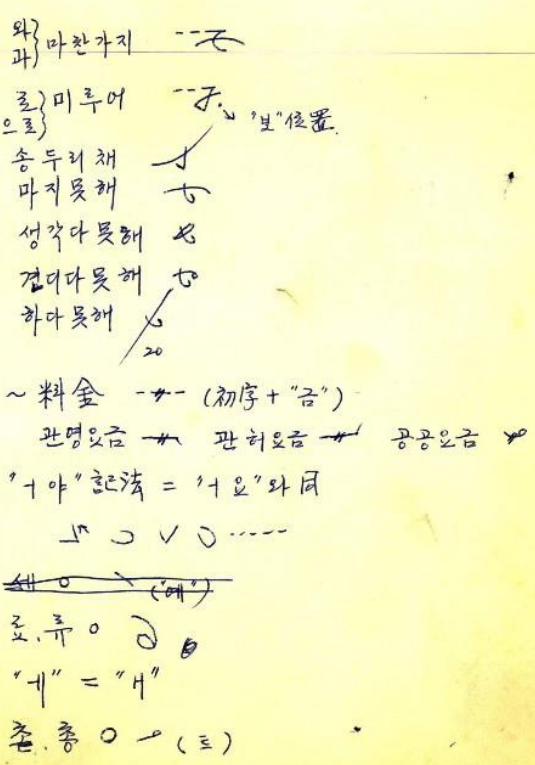 와} 마찬가지
과}
로} 미루어
으로} "보"位置.
송두리채
마지못해
생각다못해
견디다못해
하다못해
20
~ 料金 (初字 + "금")
관영요금 관허요금 공공요금
"ㅓ야" 記法 = "ㅓ요"와 同
("예")
료. 류
"ㅔ" = "ㅐ"
촌. 총 (토)